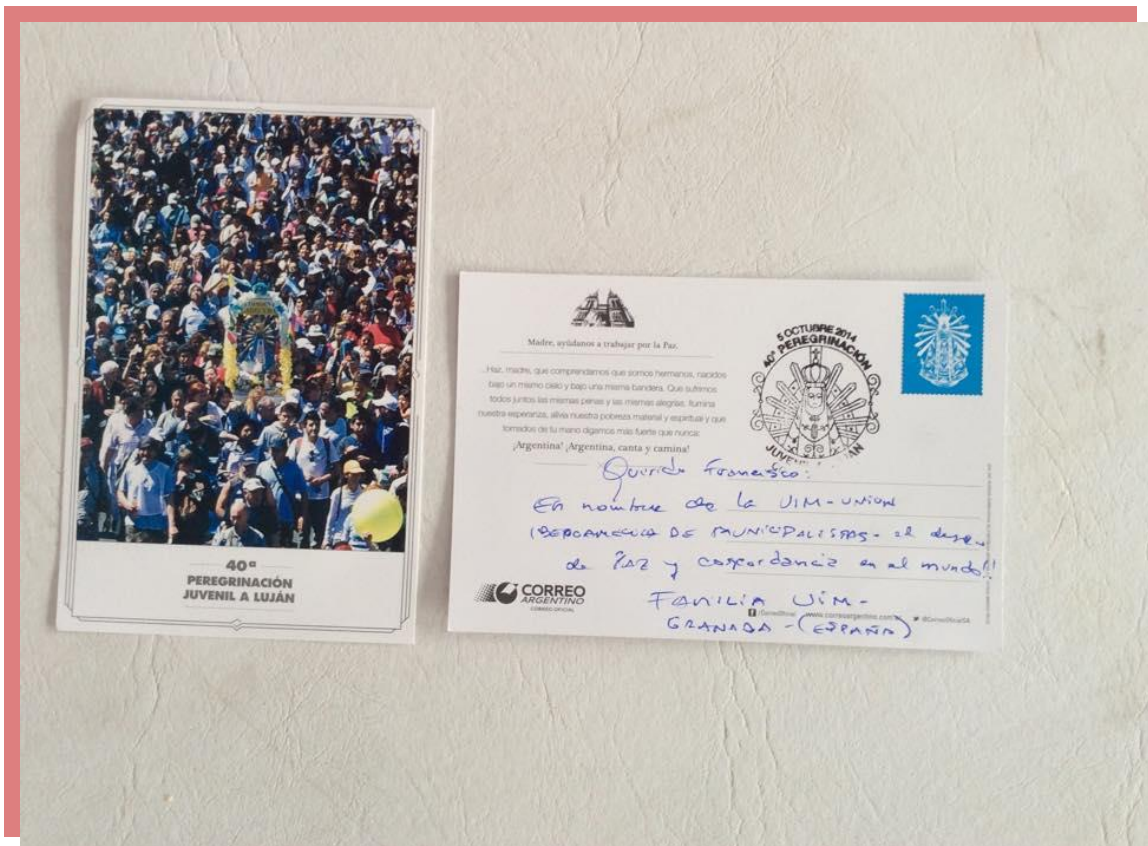 40ª
PEREGRINACIÓN
JUVENIL A LUJÁN
Madre, ayúdanos a trabajar por la Paz.
...Haz, madre, que comprendamos que somos hermanos, nacidos
bajo un mismo cielo y bajo una misma bandera. Que sufrimos
todos juntos las mismas penas y las mismas alegrías. Ilumina
nuestra esperanza, alivia nuestra pobreza material y espiritual y que
tomados de tu mano digamos más fuerte que nunca:
¡Argentina! ¡Argentina, canta y camina!
5 OCTUBRE 2014
40ª PEREGRINACIÓN
Querido Francisco:
En nombre de la UIM-UNION
IBEROAMERICANA DE MUNICIPALISTAS - el deseo
de PAZ y concordancia en el mundo!!
FAMILIA UIM-
GRANADA - (ESPAÑA)
CORREO
ARGENTINO
CORREO OFICIAL
/CorreoOficial
www.correoargentino.com.ar
@CorreoOficialSA